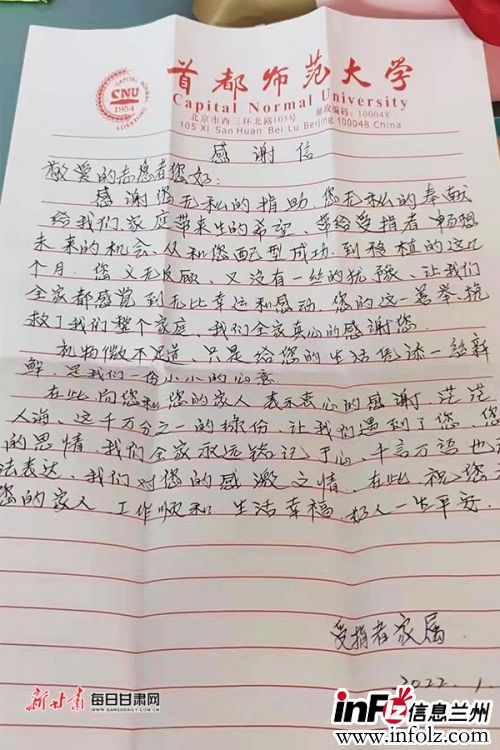 首都师范大学
Capital Normal University
CAPITAL NORMAL UNIVERSITY
CNU
1954
北京市西三环北路105号 邮政编码:100048
105 Xi San Huan Bei Lu Beijing 100048 China
感谢信
敬爱的志愿者您好:
感谢您无私的捐助,您无私的奉献
给我们家庭带来生的希望、带给受捐者畅想
未来的机会、从和您配型成功,到移植的这几
个月,您义无反顾、又没有一丝的犹豫、让我们
全家都感觉到无比幸运和感动,您的这一善举、拯
救了我们整个家庭,我们全家真心的感谢您.
礼物微不足道,只是给您的生活凭添一丝新
鲜,是我们一份小小的心意
在此向您和您的家人表示衷心的感谢,茫茫
人海、这千万分之一的缘份,让我们遇到了您,您
的恩情,我们全家永远铭记于心,千言万语也
法表达、我们对您的感激之情,在此祝您
您的家人 工作顺利 生活幸福 好人一生平安.
受捐者家属
2022.1.
新甘肃 每日甘肃网
WWW.GANSUDAILY.COM.CN
inf 信息兰州
www.infolz.com